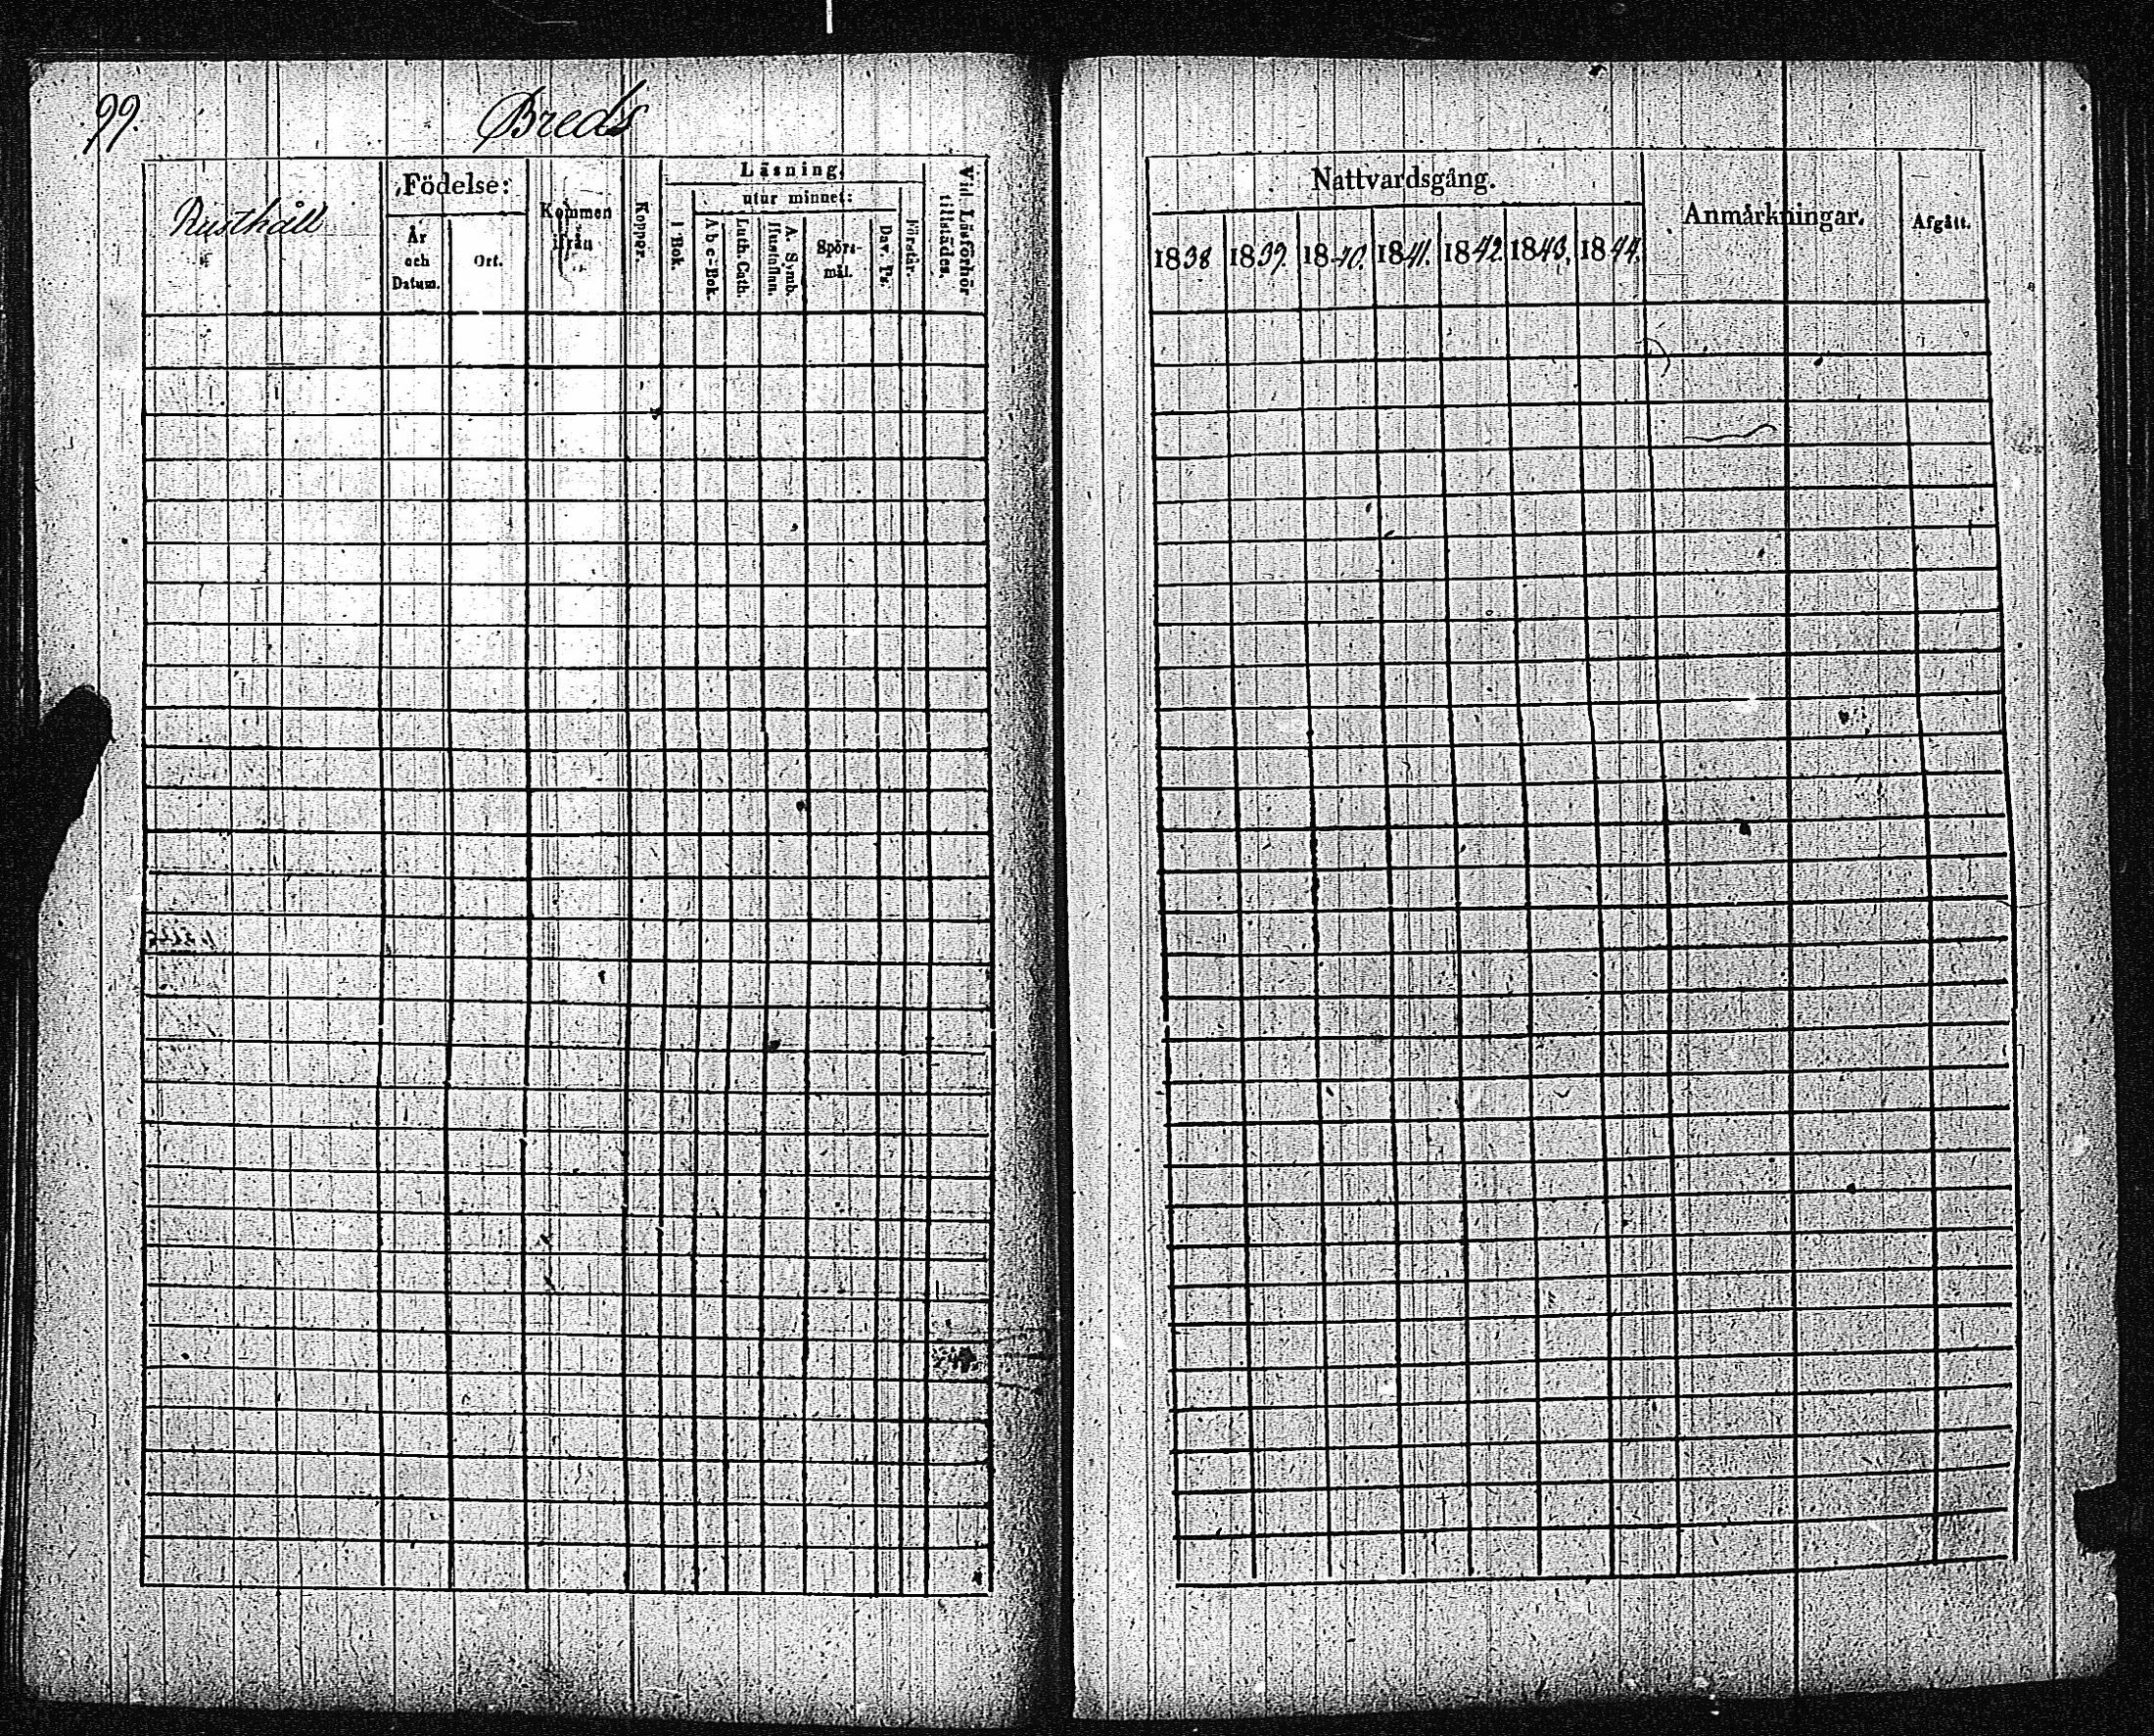 99.
Breds
Rusthåll
Födelse:
År och Datum.
Ort.
Kommen ifrån
Koppor.
Läsning,
utur minnet:
i Bok.
A b c-Bok.
Luth. Cath.
A. Symb. Hustaflan.
Spörsmål.
Dav. Ps.
Förstår.
Vid Läsförhör tillstädes.
Nattvardsgång.
1838 1839. 1840. 1841. 1842. 1843. 1844.
Anmärkningar.
Afgått.